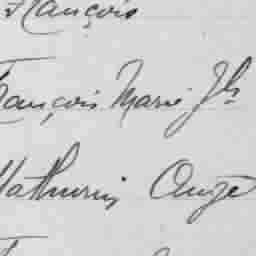 François
François Marie Jh
Mathurin Ange